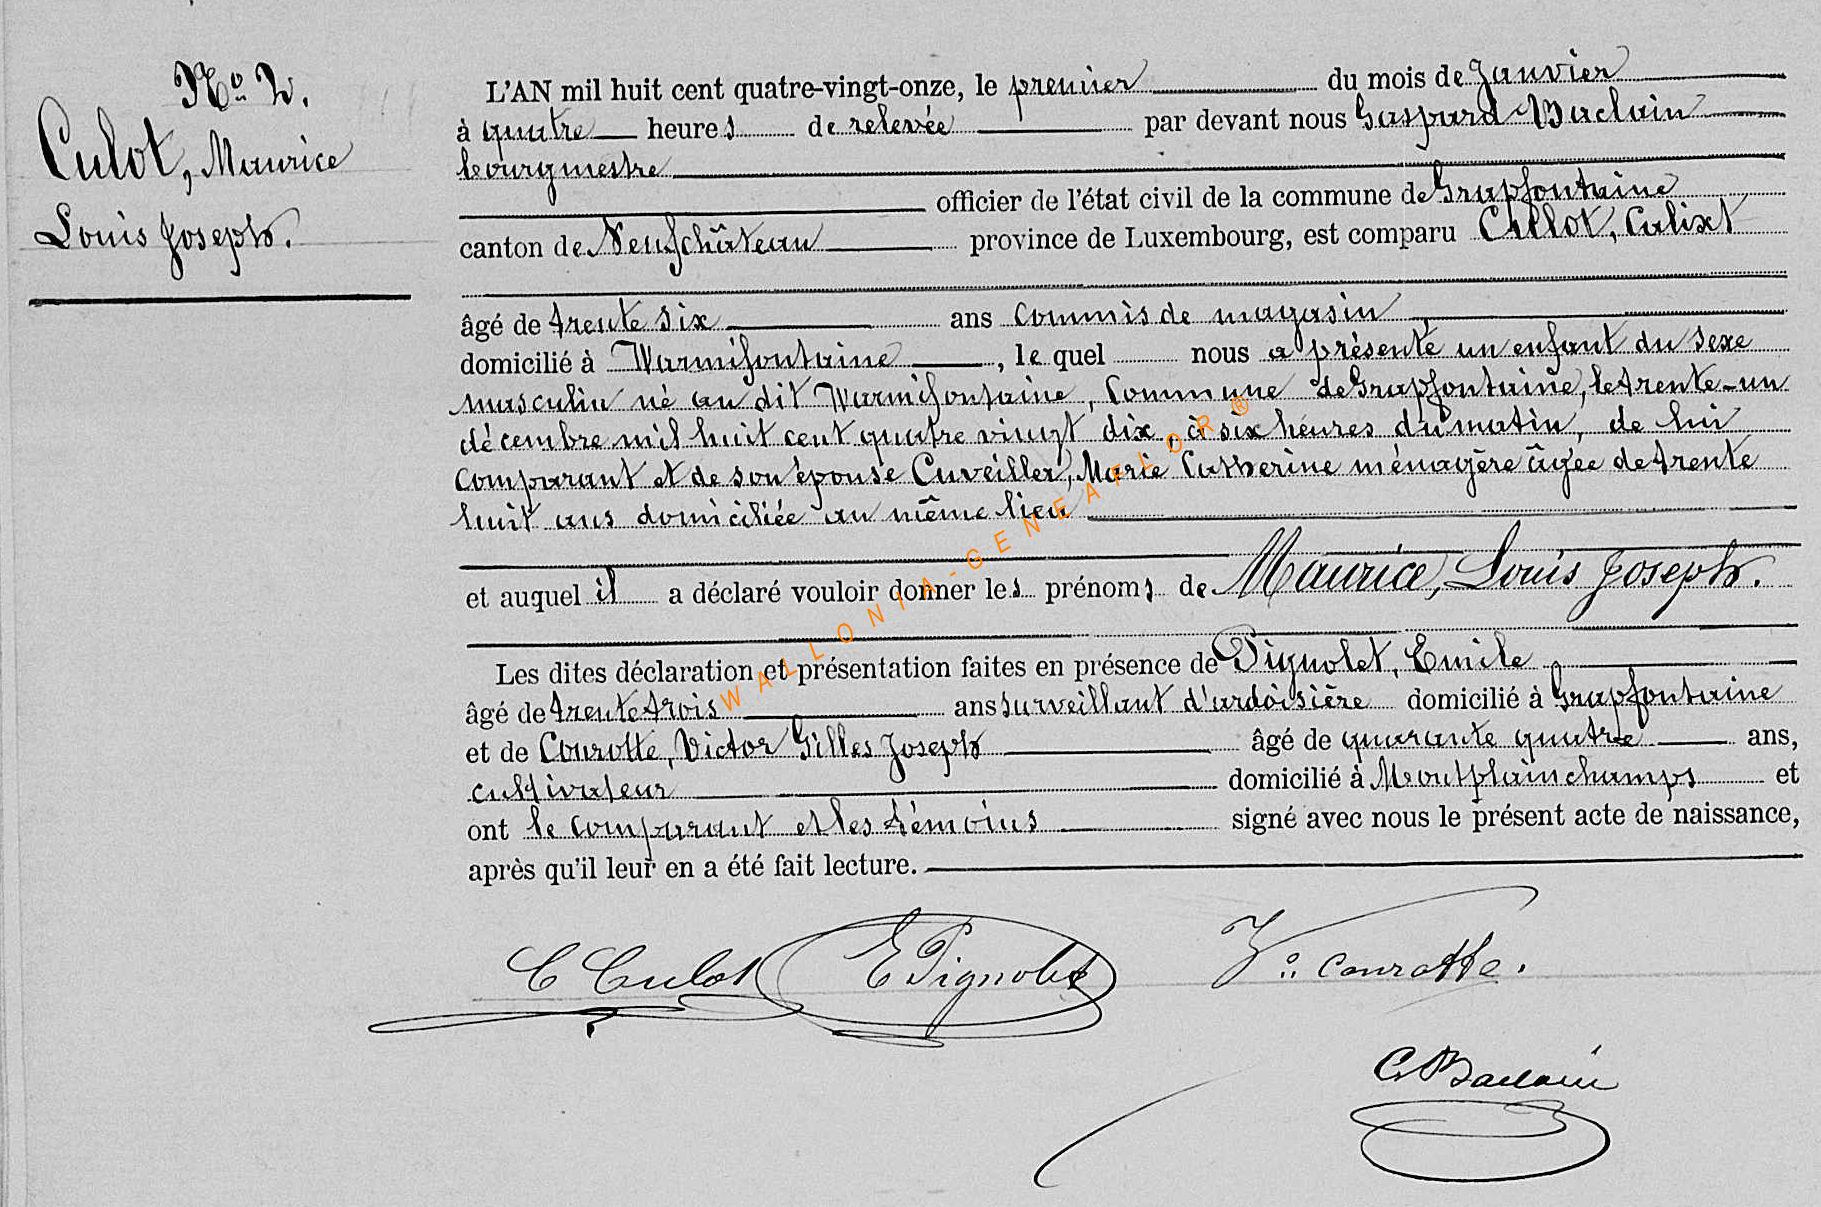 No 2.
Culot, Maurice
Louis Joseph.
L'AN mil huit cent quatre-vingt-onze, le premier du mois de Janvier
à quatre heures de relevée par devant nous Gaspard Baclain
bourgmestre
officier de l'état civil de la commune de Grapfontaine
canton de Neufchâteau province de Luxembourg, est comparu Culot, Calixt
âgé de trente six ans commis de magasin
domicilié à Warmifontaine, le quel nous a présenté un enfant du sexe
masculin né au dit Warmifontaine, Commune de Grapfontaine, le trente-un
décembre mil huit cent quatre vingt dix, à six héures du matin, de lui
comparant et de son épouse Cuveiller, Marie Catherine ménagère âgée de trente
huit ans domiciliée au même lieu
et auquel il a déclaré vouloir donner les prénoms de Maurice, Louis Joseph.
Les dites déclaration et présentation faites en présence de Pignolet, Emile
âgé de trente trois ans surveillant d'ardoisière domicilié à Grapfontaine
et de Courotte, Victor Gilles Joseph âgé de quarante quatre ans,
cultivateur domicilié à Montplainchamps et
ont le comparant et les témoins signé avec nous le présent acte de naissance,
après qu'il leur en a été fait lecture.
C Culot E Pignolet Vor Courotte.
G. Baclain
WALLONIA-GENEAFLOR ®